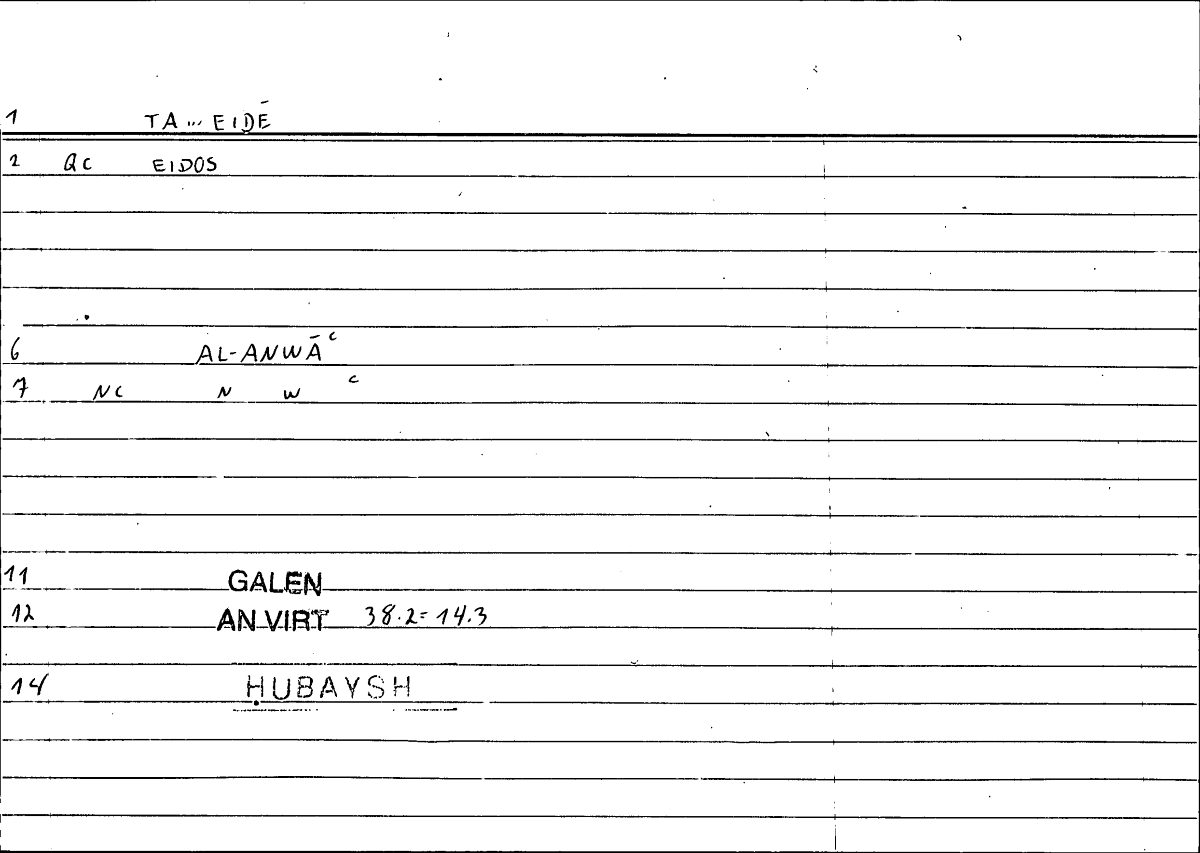 1 TA ... EIDĒ
2 QC EIDOS
6 AL-ANWĀᶜ
7 NC N W ᶜ
11 GALEN
12 AN VIRT 38.2=14.3
14 ḤUBAYSH